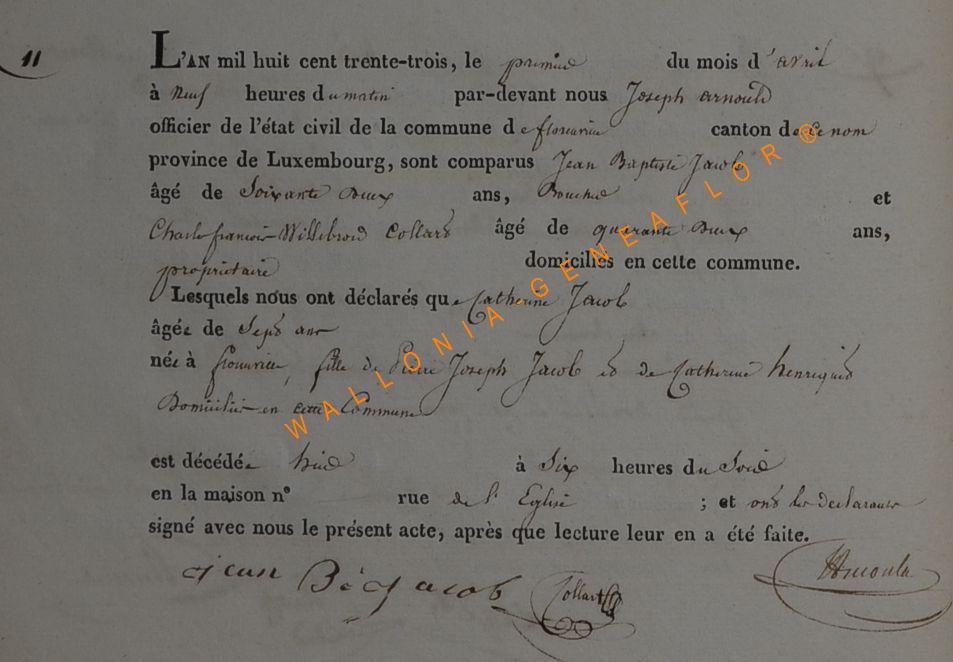 11
L'AN mil huit cent trente-trois, le premier du mois d'avril
à neuf heures du matin par-devant nous Joseph Arnould
officier de l'état civil de la commune de florenville canton de ce nom
province de Luxembourg, sont comparus Jean Baptiste Jacob
âgé de Soixante Deux ans, Boucher et
Charle françois Willebrord Collard âgé de quarante Deux ans,
proprietaire domiciliés en cette commune.
Lesquels nous ont déclarés que Catherine Jacob
âgée de Sept ans
née à florenville, fille de Pierre Joseph Jacob et de Catherine henriquet
Domiciliés en cette Commune
est décédée hier à Six heures du Soir
en la maison n° rue de l'Eglise ; et ont les declarants
signé avec nous le présent acte, après que lecture leur en a été faite.
jean Bt jacob Collart Arnould
WALLONIA-GENEAFLOR ®